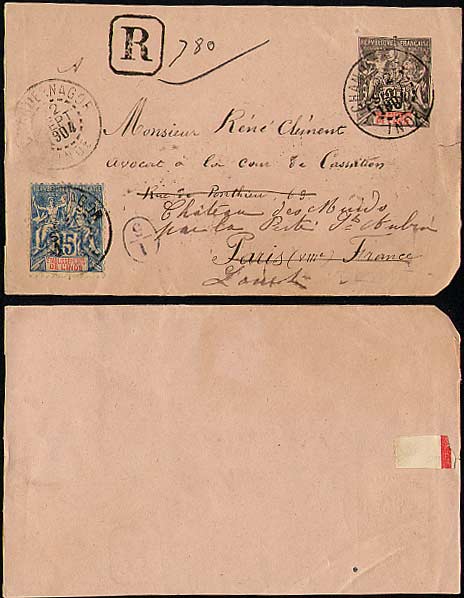 R 780
RÉPUBLIQUE FRANÇAISE
INDE
904
Monsieur René Clément
avocat à la cour de Cassation
Rue de Ponthieu, 63
Château des
par la Ferté St Aubin
15
DE L'INDE
Paris (VIIIe) France
Loiret